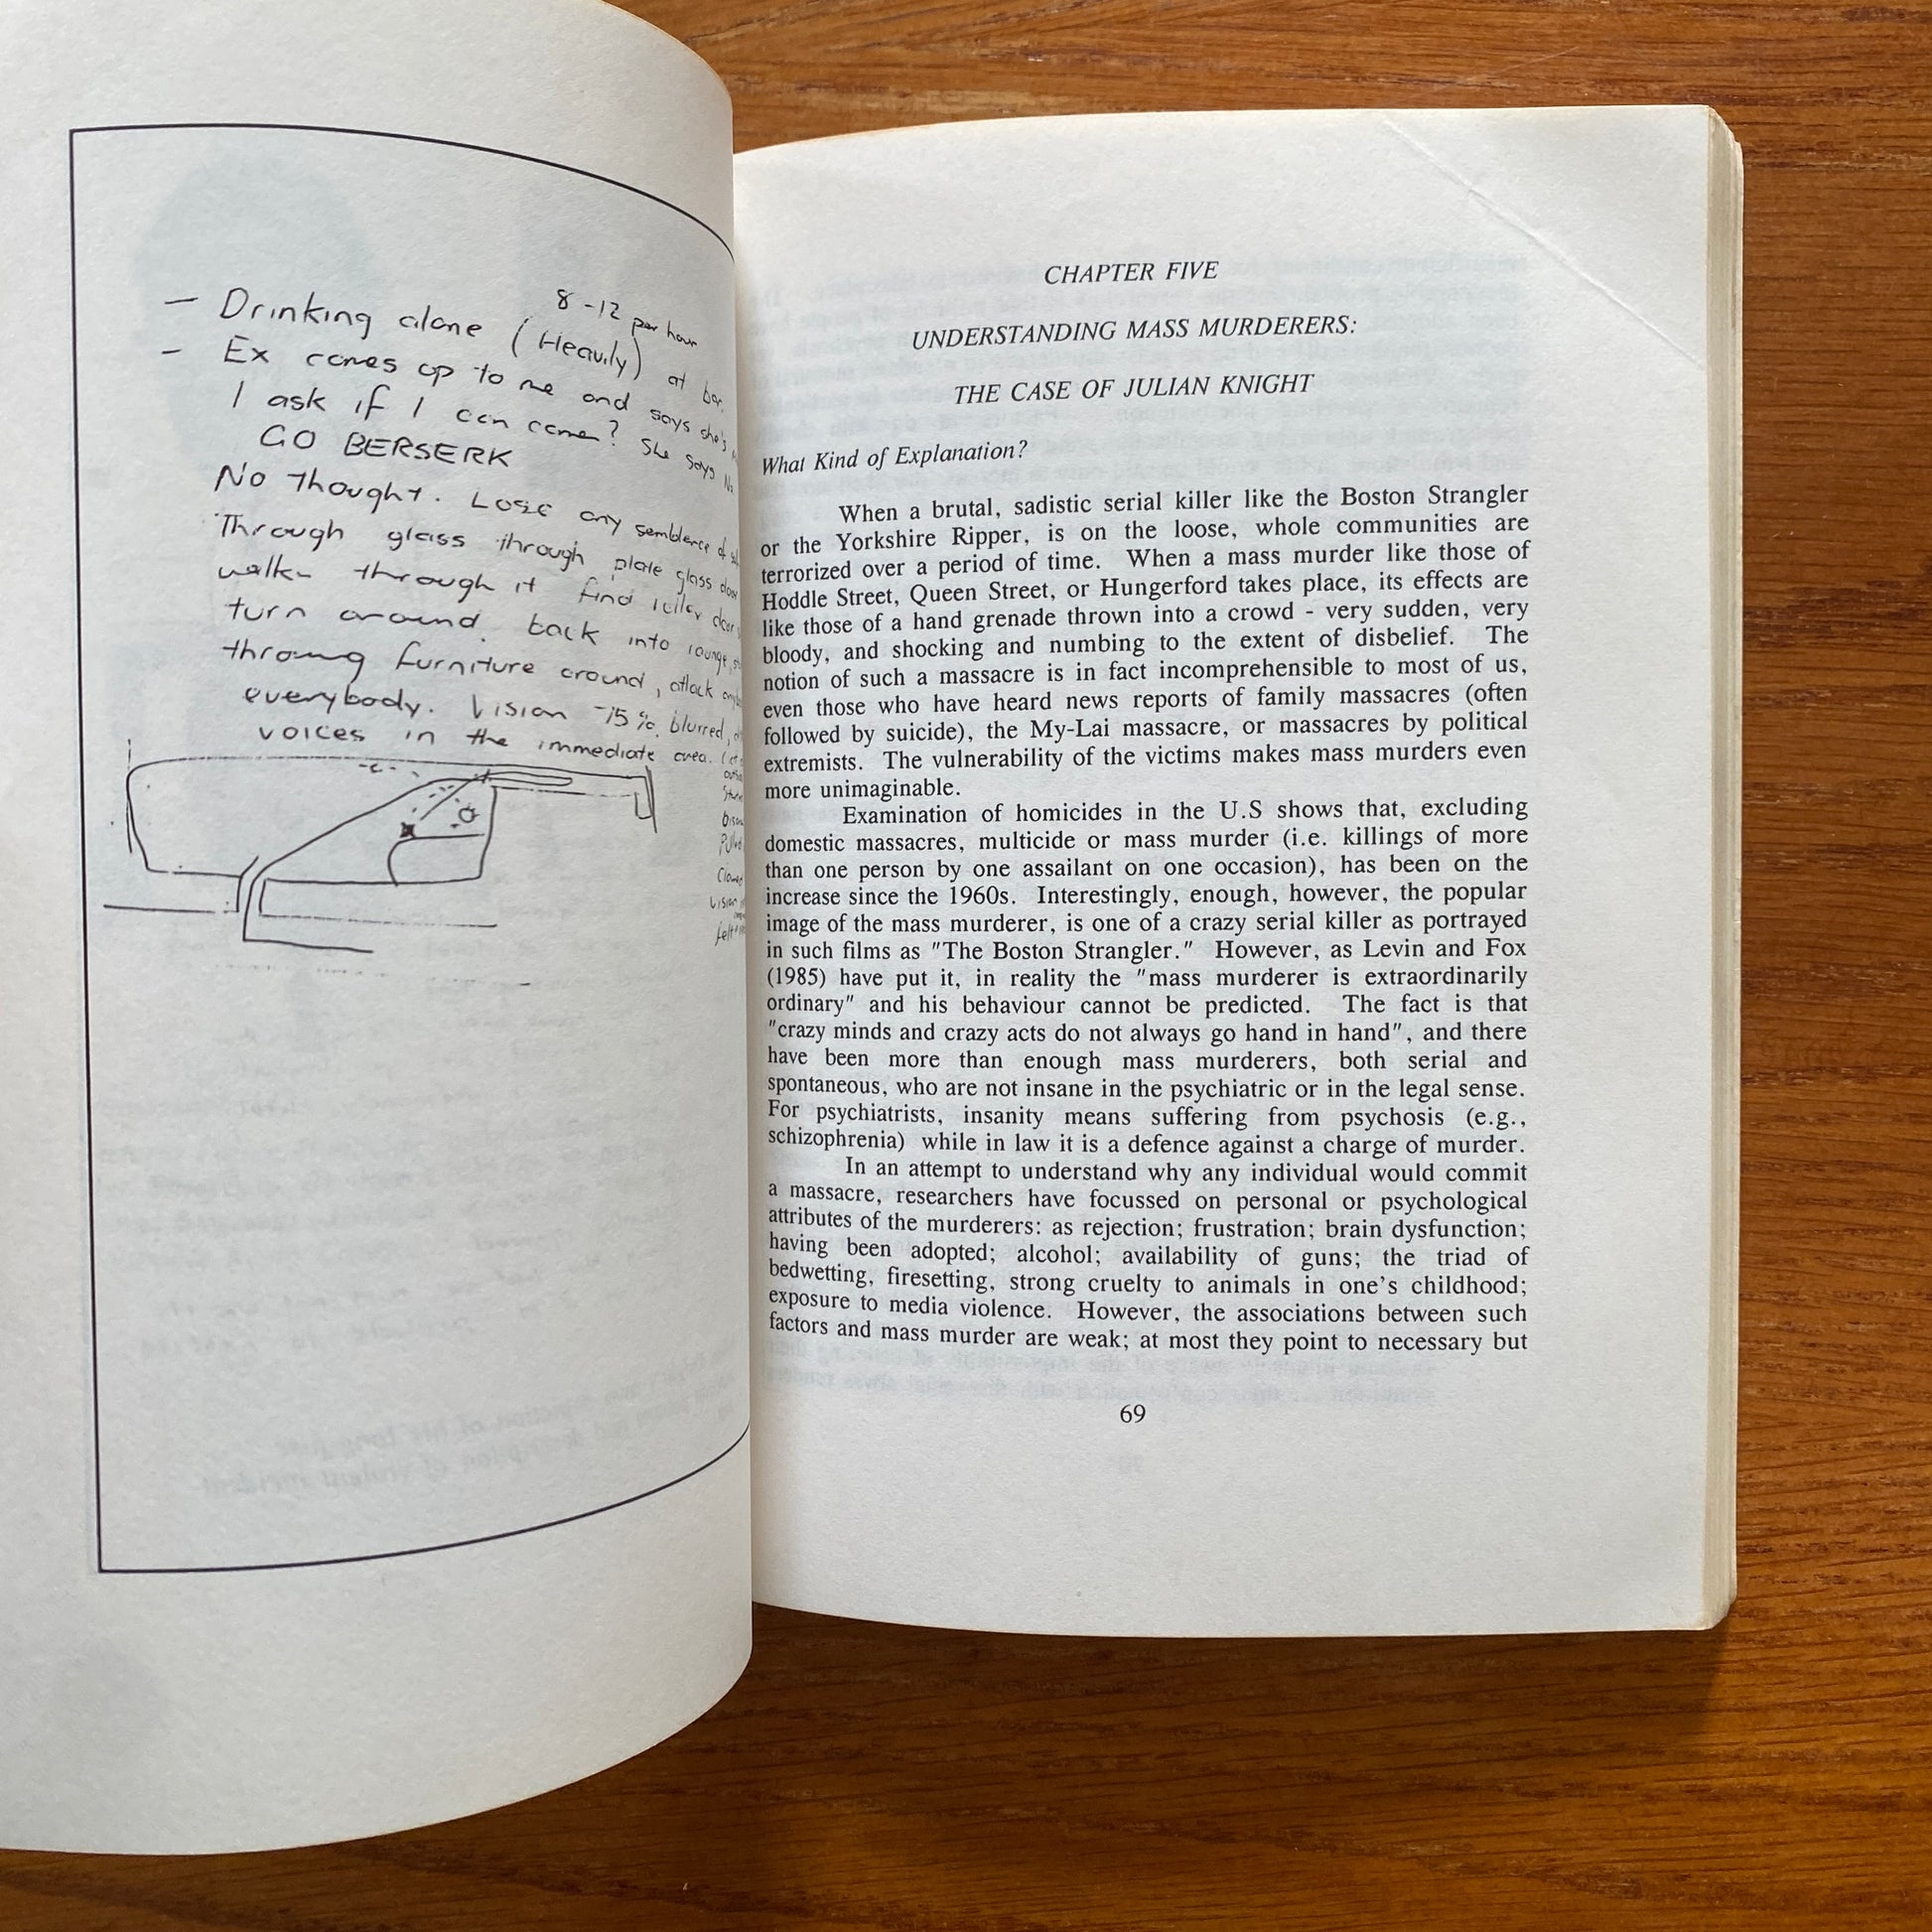 8-12 per hour
- Drinking alone (Heavily) at bar.
- Ex comes up to me and says she's
I ask if I can come? She says No
GO BERSERK
No thought. Lose any semblence of
Through glass through plate glass door
walk through it find door
turn around back into lounge,
throwing furniture around, attack
everybody. Vision 75% blurred,
voices in the immediate area.
Vision
felt
CHAPTER FIVE
UNDERSTANDING MASS MURDERERS:
THE CASE OF JULIAN KNIGHT
What Kind of Explanation?
When a brutal, sadistic serial killer like the Boston Strangler
or the Yorkshire Ripper, is on the loose, whole communities are
terrorized over a period of time. When a mass murder like those of
Hoddle Street, Queen Street, or Hungerford takes place, its effects are
like those of a hand grenade thrown into a crowd - very sudden, very
bloody, and shocking and numbing to the extent of disbelief. The
notion of such a massacre is in fact incomprehensible to most of us,
even those who have heard news reports of family massacres (often
followed by suicide), the My-Lai massacre, or massacres by political
extremists. The vulnerability of the victims makes mass murders even
more unimaginable.
Examination of homicides in the U.S shows that, excluding
domestic massacres, multicide or mass murder (i.e. killings of more
than one person by one assailant on one occasion), has been on the
increase since the 1960s. Interestingly, enough, however, the popular
image of the mass murderer, is one of a crazy serial killer as portrayed
in such films as "The Boston Strangler." However, as Levin and Fox
(1985) have put it, in reality the "mass murderer is extraordinarily
ordinary" and his behaviour cannot be predicted. The fact is that
"crazy minds and crazy acts do not always go hand in hand", and there
have been more than enough mass murderers, both serial and
spontaneous, who are not insane in the psychiatric or in the legal sense.
For psychiatrists, insanity means suffering from psychosis (e.g.,
schizophrenia) while in law it is a defence against a charge of murder.
In an attempt to understand why any individual would commit
a massacre, researchers have focussed on personal or psychological
attributes of the murderers: as rejection; frustration; brain dysfunction;
having been adopted; alcohol; availability of guns; the triad of
bedwetting, firesetting, strong cruelty to animals in one's childhood;
exposure to media violence. However, the associations between such
factors and mass murder are weak; at most they point to necessary but
69